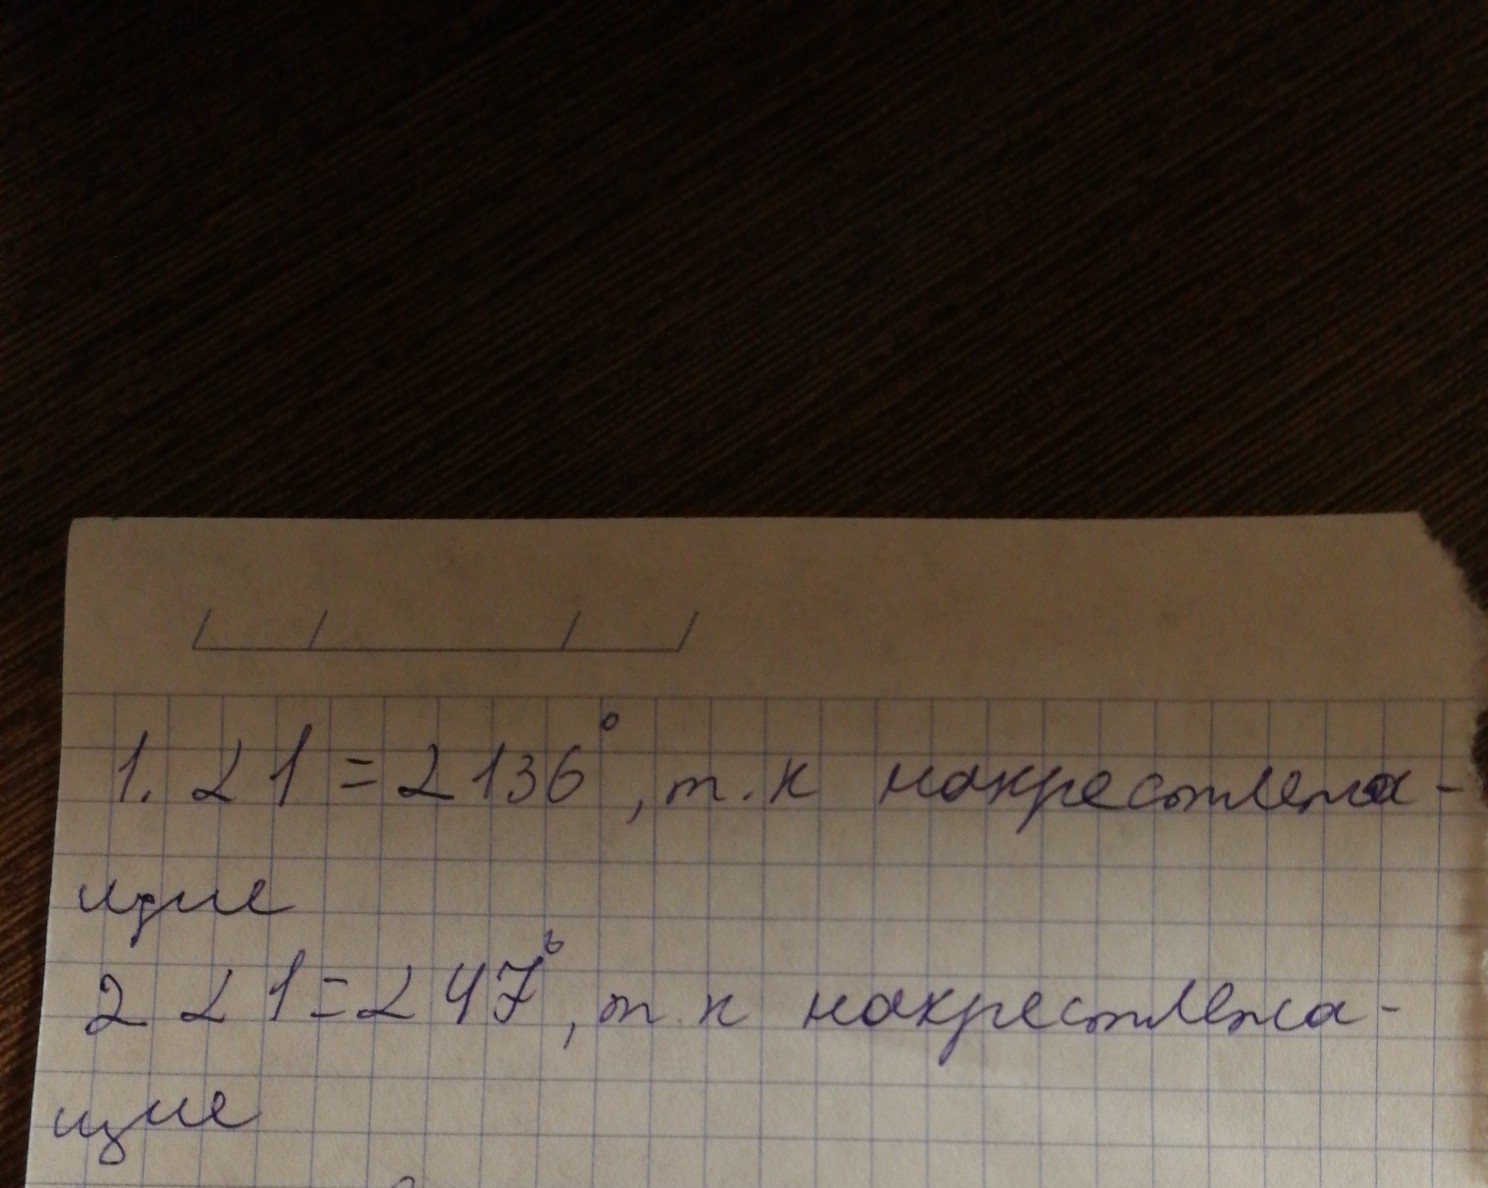 1. ∠1 = ∠136°, т.к накрестлежа-
щие
2 ∠1 = ∠47°, т.к накрестлежа-
щие